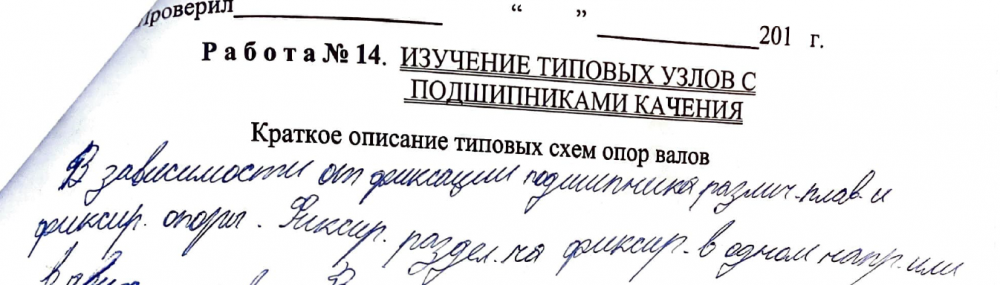 Проверил____________________ “ ” ______________201 г.
Работа № 14. ИЗУЧЕНИЕ ТИПОВЫХ УЗЛОВ С
ПОДШИПНИКАМИ КАЧЕНИЯ
Краткое описание типовых схем опор валов
В зависимости от фиксации подшипника различ. плав. и
фиксир. опоры. Фиксир. раздел. на фиксир. в одном напр. или